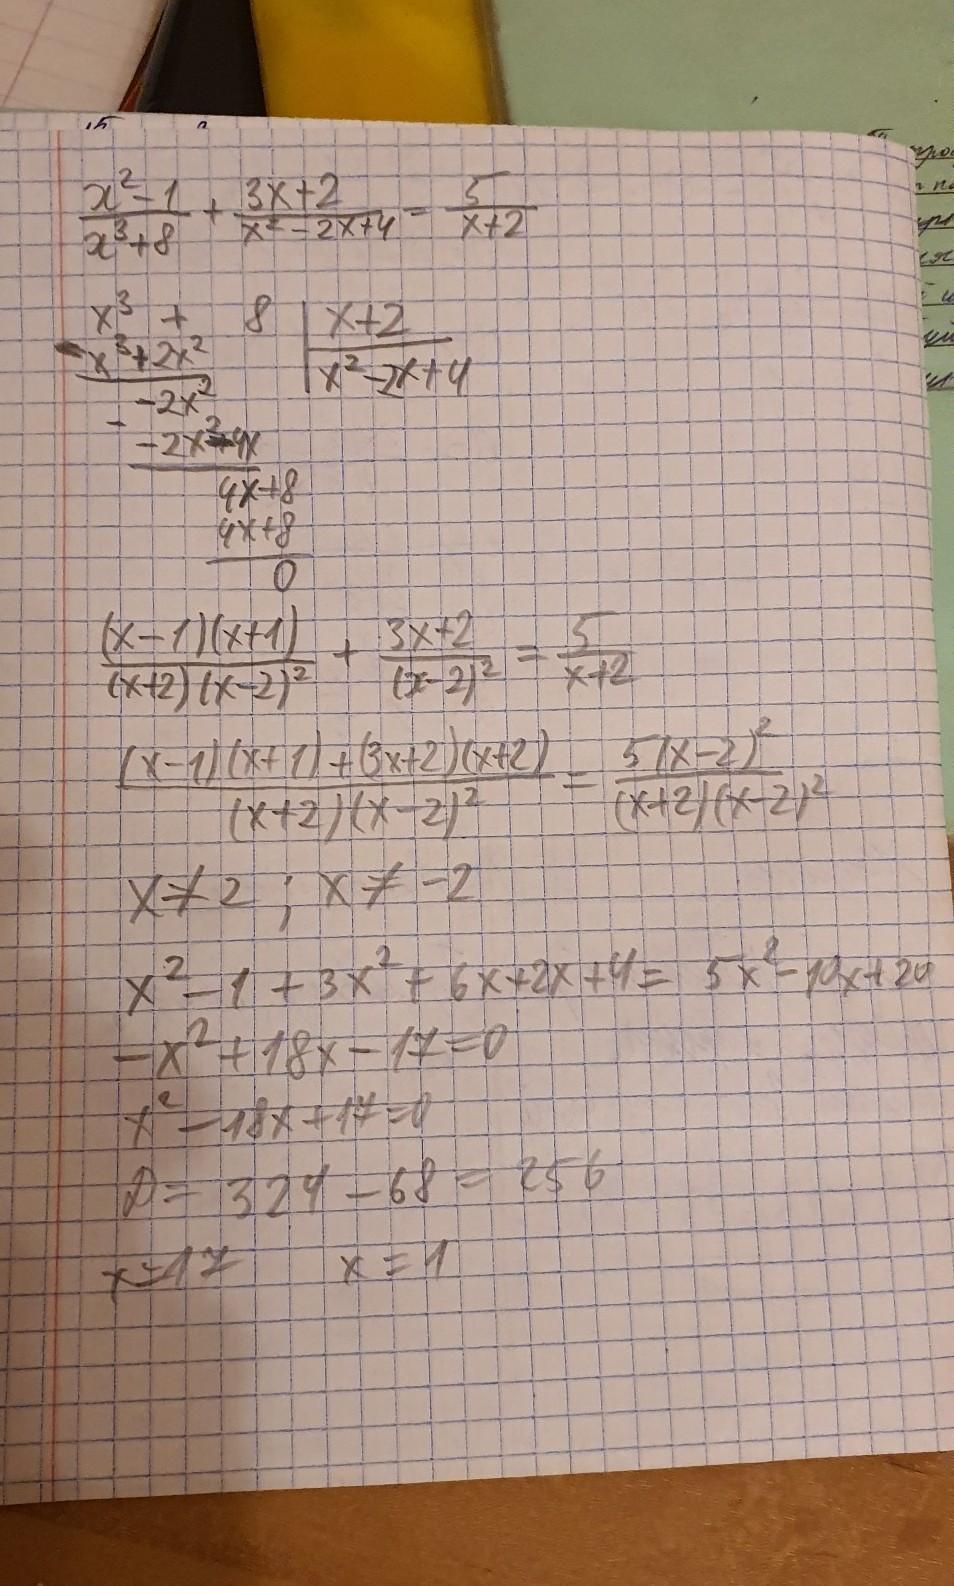 x²-1/x³+8 + 3x+2/x²-2x+4 = 5/x+2
x³ + 8 | x+2
x³+2x² | x²-2x+4
-2x²
-2x²-4x
4x+8
4x+8
0
(x-1)(x+1)/(x+2)(x-2)² + 3x+2/(x-2)² = 5/x+2
(x-1)(x+1)+(3x+2)(x+2)/(x+2)(x-2)² = 5(x-2)²/(x+2)(x-2)²
x≠2 ; x≠-2
x²-1+3x²+6x+2x+4= 5x²-10x+20
-x²+18x-17=0
x²-18x+17=0
D= 324-68=256
x=17 x=1